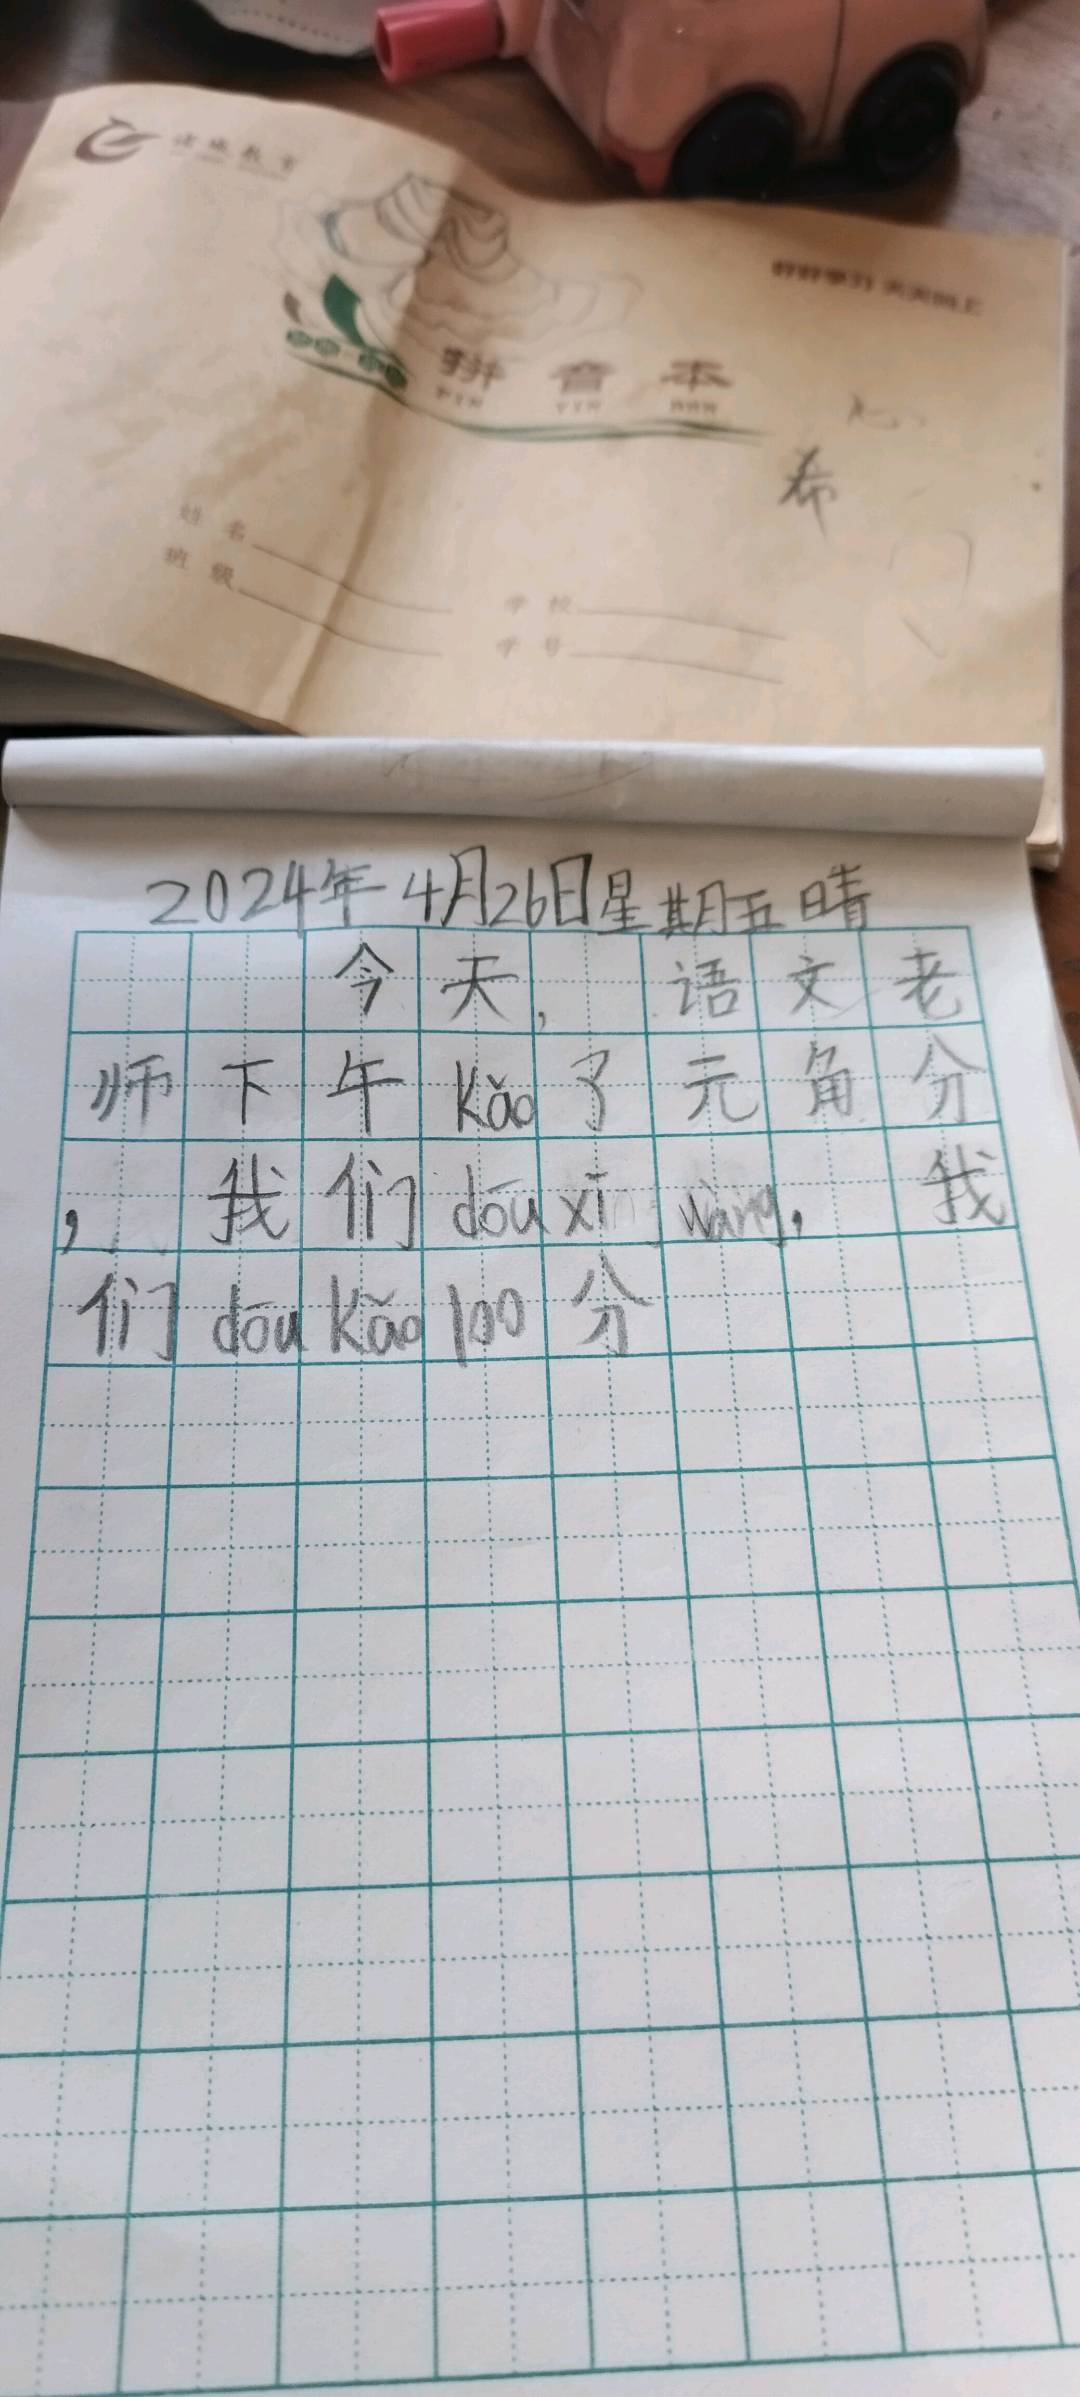 诺城教育
好好学习 天天向上
拼音本
PIN YIN BEN
希
姓名
班级
学校
学号
2024年4月26日星期五晴
今天,语文老
师下午kǎo了元角分
,我们dōuxīwàng,我
们dōukǎo100分